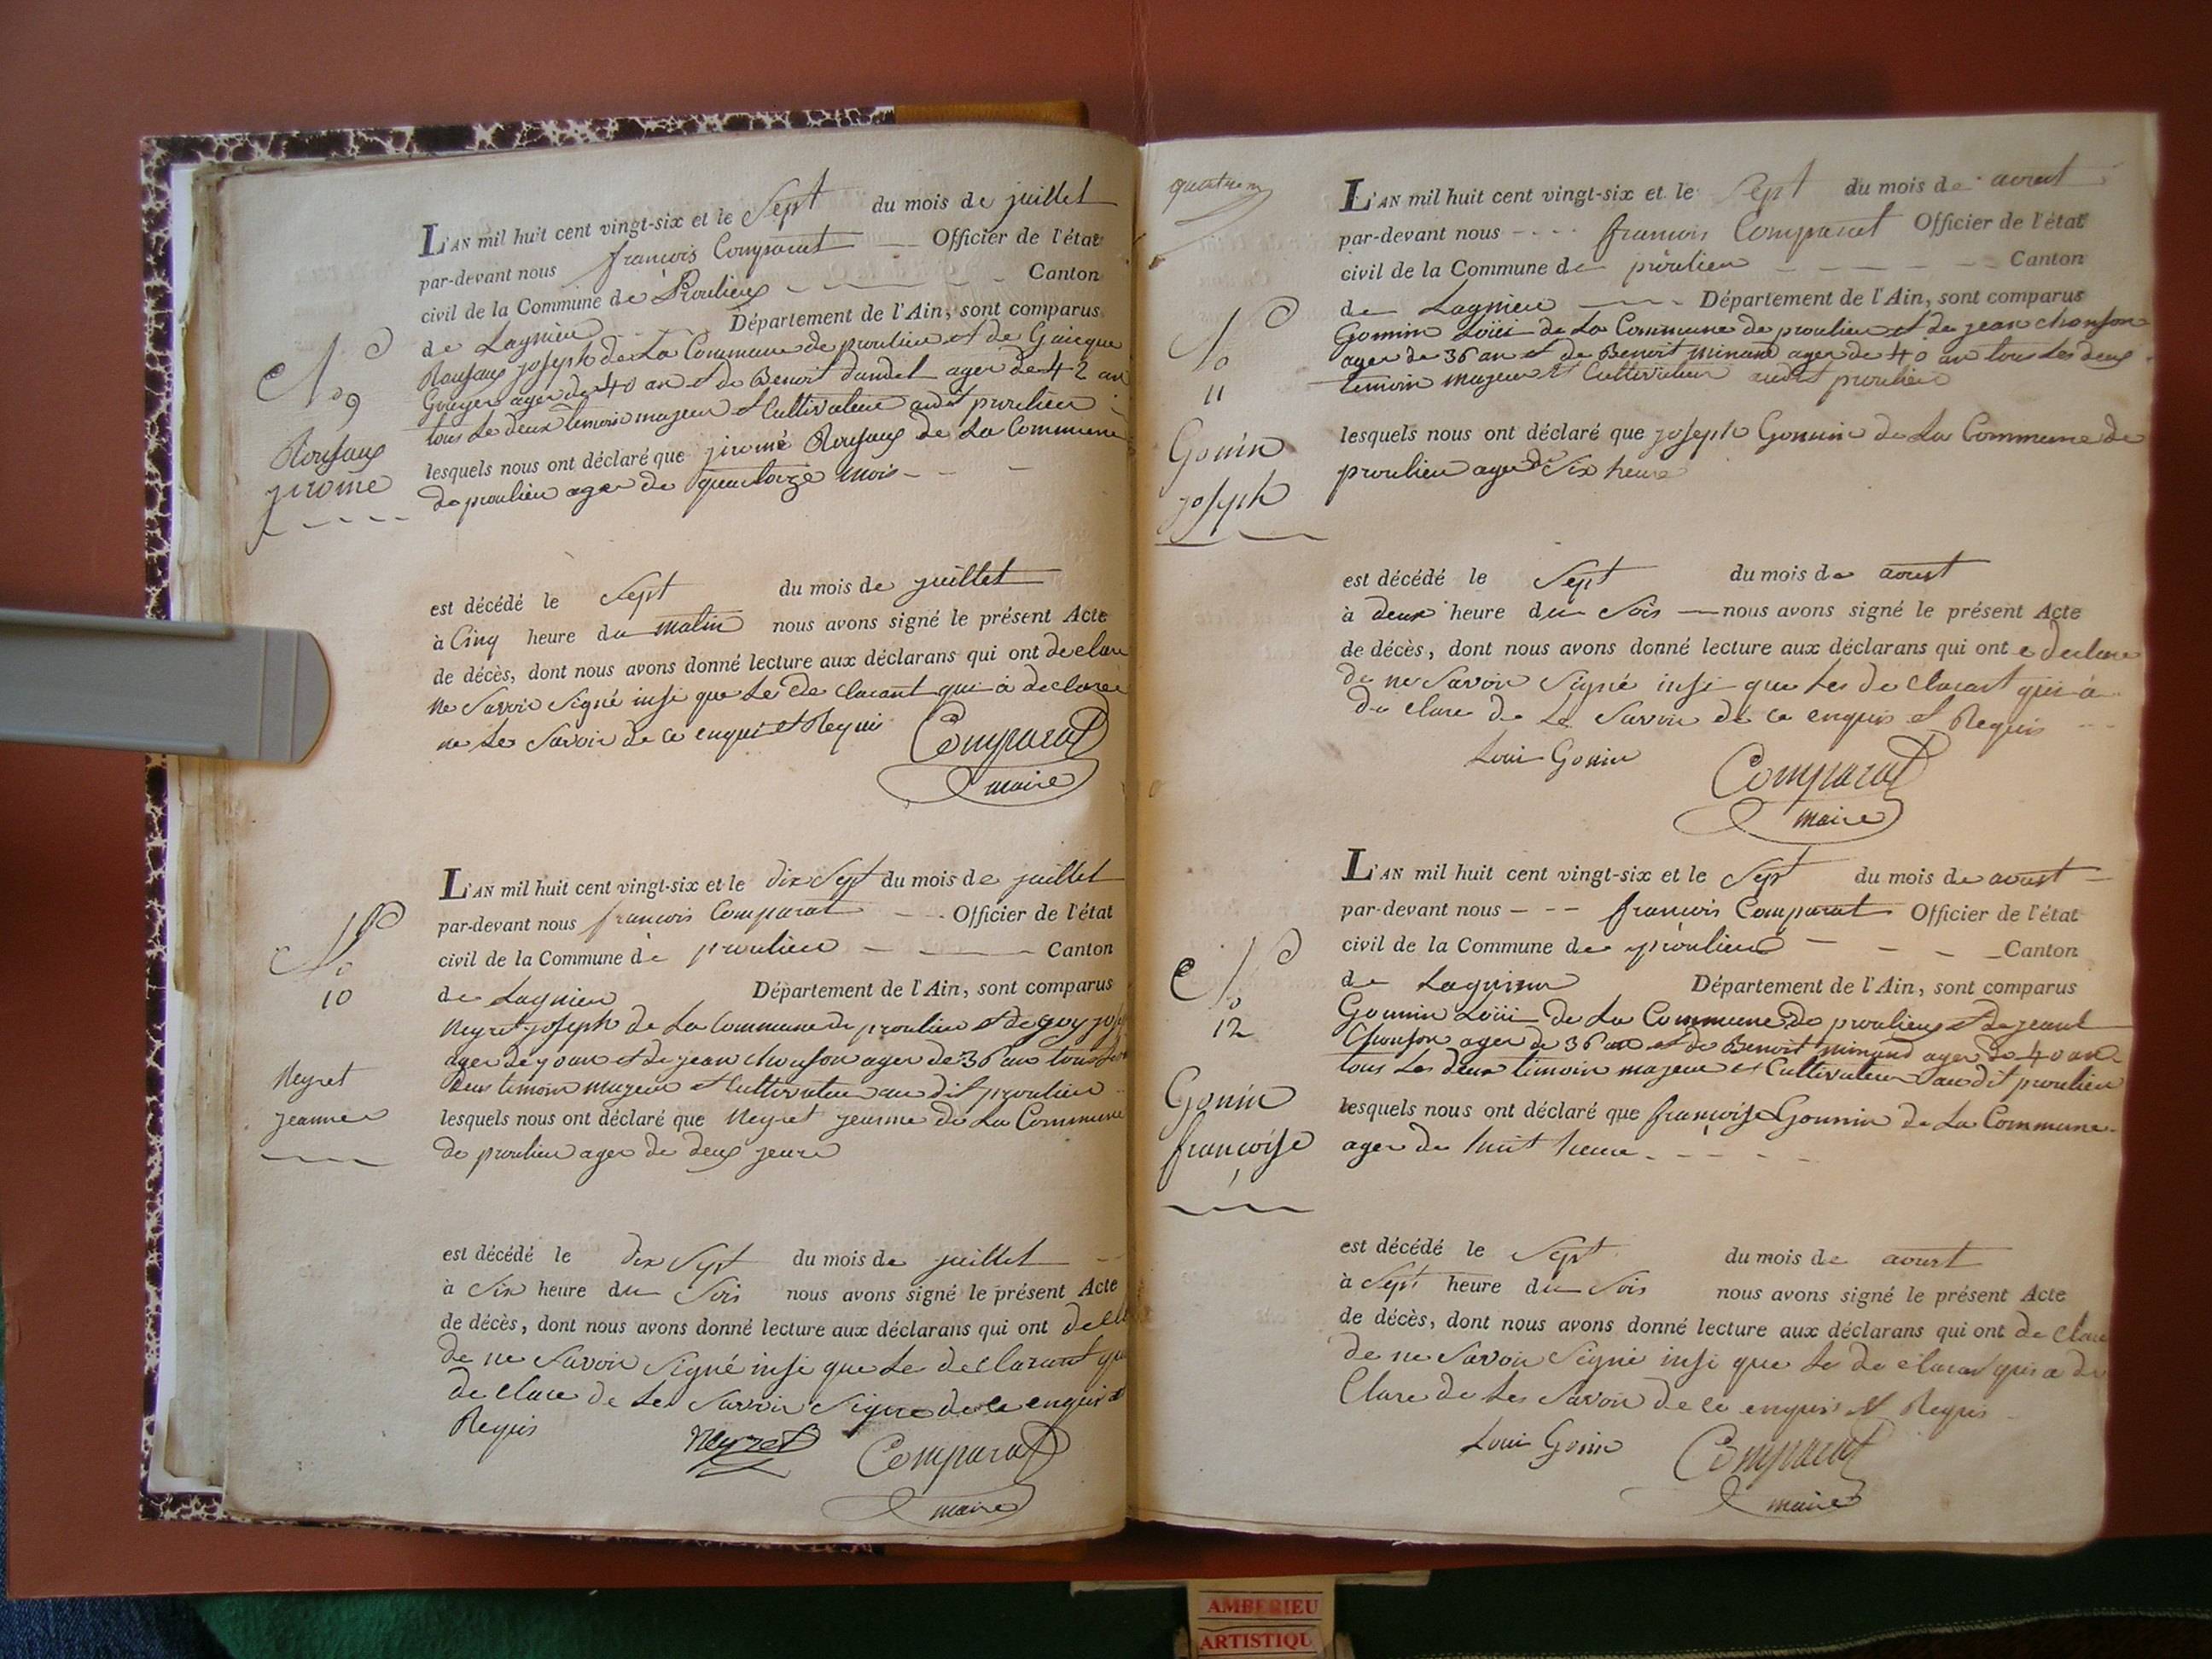 L'AN mil huit cent vingt-six et le Sept du mois de juillet
par-devant nous françois Comparat Officier de l'état
civil de la Commune de Proulieu Canton
de Lagnieu Département de l'Ain, sont comparus
joseph de La Commune de proulieu et de
ager de 40 an et de Benoit dandel ager de 42 an
tous Le deux temoin majeur et Cultivateur audit proulieu
lesquels nous ont déclaré que jiromé de La Commune
de proulieu ager de quatorze mois
No 9
jirome
est décédé le Sept du mois de juillet
à Cinq heure du matin nous avons signé le présent Acte
de décès, dont nous avons donné lecture aux déclarans qui ont declare
ne Savoir Signé insi que Le de clarant qui à declare
ne Le Savoir de ce enquis et Requis
Comparat
maire
L'AN mil huit cent vingt-six et le dix Sept du mois de juillet
par-devant nous francois Comparat Officier de l'état
civil de la Commune de proulieu Canton
de Lagnieu Département de l'Ain, sont comparus
Neyret joseph de La Commune de proulieu et de
ager de et de jean chonson ager de 36 an tous
deux temoin majeur et Cultivateur au dit proulieu
lesquels nous ont déclaré que Neyret jeanne de La Commune
de proulieu ager de deux jeure
No
10
Neyret
jeanne
est décédé le dix Sept du mois de juillet
à Six heure du Soir nous avons signé le présent Acte
de décès, dont nous avons donné lecture aux déclarans qui ont
de ne Savoir Signé insi que Le declarant
de clare de Le Savoir Signe de ce enquis et
Requis
Neyret Comparat
maire
L'AN mil huit cent vingt-six et le Sept du mois de aoust
par-devant nous francois Comparat Officier de l'état
civil de la Commune de proulieu Canton
de Lagnieu Département de l'Ain, sont comparus
Gonnin Loüi de La Commune de proulieu et de jean chonson
ager de 36 an et de Benoit minand ager de 40 an tous Les deux
temoin majeur et Cultivateur audit proulieu
lesquels nous ont déclaré que joseph Gonnin de La Commune de
proulieu ager de Six heure
No
11
Gonin
joseph
est décédé le Sept du mois de aoust
à deux heure du Soir nous avons signé le présent Acte
de décès, dont nous avons donné lecture aux déclarans qui ont e declare
de ne Savoir Signé insi que Les de clarant qui à
de clare de Le Savoir de ce enquis et Requis
Loui Gonin Comparat
maire
L'AN mil huit cent vingt-six et le Sept du mois de aoust
par-devant nous francois Comparat Officier de l'état
civil de la Commune de proulieu Canton
de Lagnieu Département de l'Ain, sont comparus
Gonnin Loüi de La Commune de proulieu et de jean
Chonson ager de 36 an et de Benoit minand ager de 40 an
tous Les deux temoin majeur et Cultivateur audit proulieu
lesquels nous ont déclaré que françoise Gonnin de La Commune
ager de huit heure
No
12
Gonin
françoise
est décédé le Sept du mois de aoust
à Sept heure du Soir nous avons signé le présent Acte
de décès, dont nous avons donné lecture aux déclarans qui ont de clare
de ne Savoir Signé insi que Le de claran qui a de
Clare de Les Savoir de ce enquis et Requis
Loui Gonin Comparat
maire
AMBERIEU
ARTISTIQU